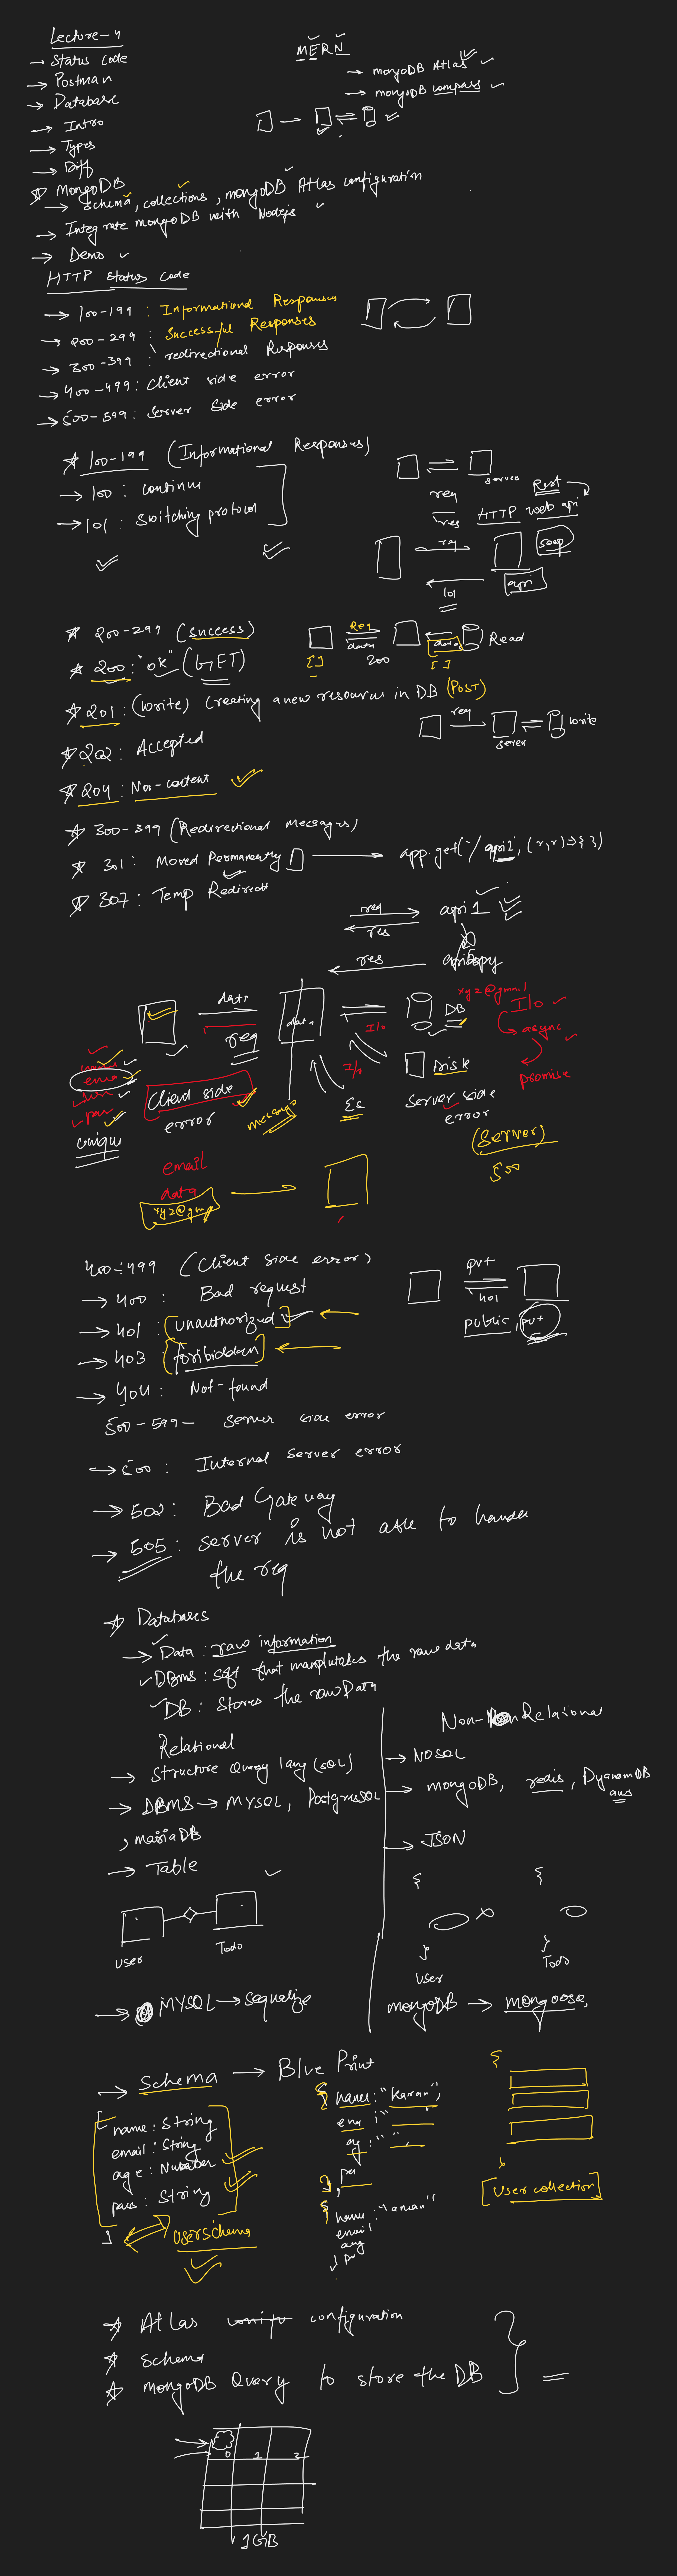 Lecture-4
→ Status Code
→ Postman
→ Database
→ Intro
→ Types
→ Diff
MERN
→ mongoDB Atlas
→ mongoDB compass
☆ MongoDB
→ Schema, collections, mongoDB Atlas configuration
→ Integrate mongoDB with Nodejs
→ Demo
HTTP Status Code
→ 100-199 : Informational Responses
→ 200-299 : Successful Responses
→ 300-399 : redirectional Responses
→ 400-499 : Client side error
→ 500-599 : Server Side error
☆ 100-199 (Informational Responses)
→ 100 : continue
→ 101 : Switching protocol
server
req
res
Rest
HTTP web api
req
soap
api
101
☆ 200-299 (success)
☆ 200 : "ok" (GET)
Req
data
200
data
Read
[ ]
[ ]
☆ 201 : (write) Creating a new resource in DB (POST)
☆ 202 : Accepted
☆ 204 : Non-content
req
server
write
☆ 300-399 (Redirectional Messages)
☆ 301 : Moved Permanently
☆ 307 : Temp Redirect
app.get('/api1', (r,r)=>{ })
req
res
api1
res
data
req
data
I/o
DB
xyz@gmail
I/o
async
promise
I/o
Disk
Client side
error
message
server side
error
(Server)
500
unique
email
data
xyz@gm
400-499 (Client side error)
→ 400 : Bad request
→ 401 : (unauthorized)
→ 403 (foribidden)
→ 404 : Not-found
pvt
401
public, pvt
500-599 - Server side error
→ 500 : Internal server error
→ 502 : Bad Gateway
→ 505 : server is not able to handle
the req
☆ Databases
→ Data : raw information
DBms : soft that manplutates the raw data
DB : Stores the raw Data
Relational
→ Structure Query lang (SQL)
→ DBMS → MYSQL, PostgresSQL
, mariaDB
→ Table
User
Todo
→ MYSQL → Sequelize
Non-Relational
→ NOSQL
→ mongoDB, redis, DyanamDB
aws
→ JSON
{
}
User
{
}
Todo
mongoDB → mongoose,
→ Schema → Blue Print
[ name : String
email : String
age : Number
pass : String
]
userschema
{ name : "Karan",
}
{ name : "aman"
email
}
{
}
[User collection]
☆ Atlas configuration
☆ Schema
☆ MongoDB Query to store the DB
0 1 2
1GB